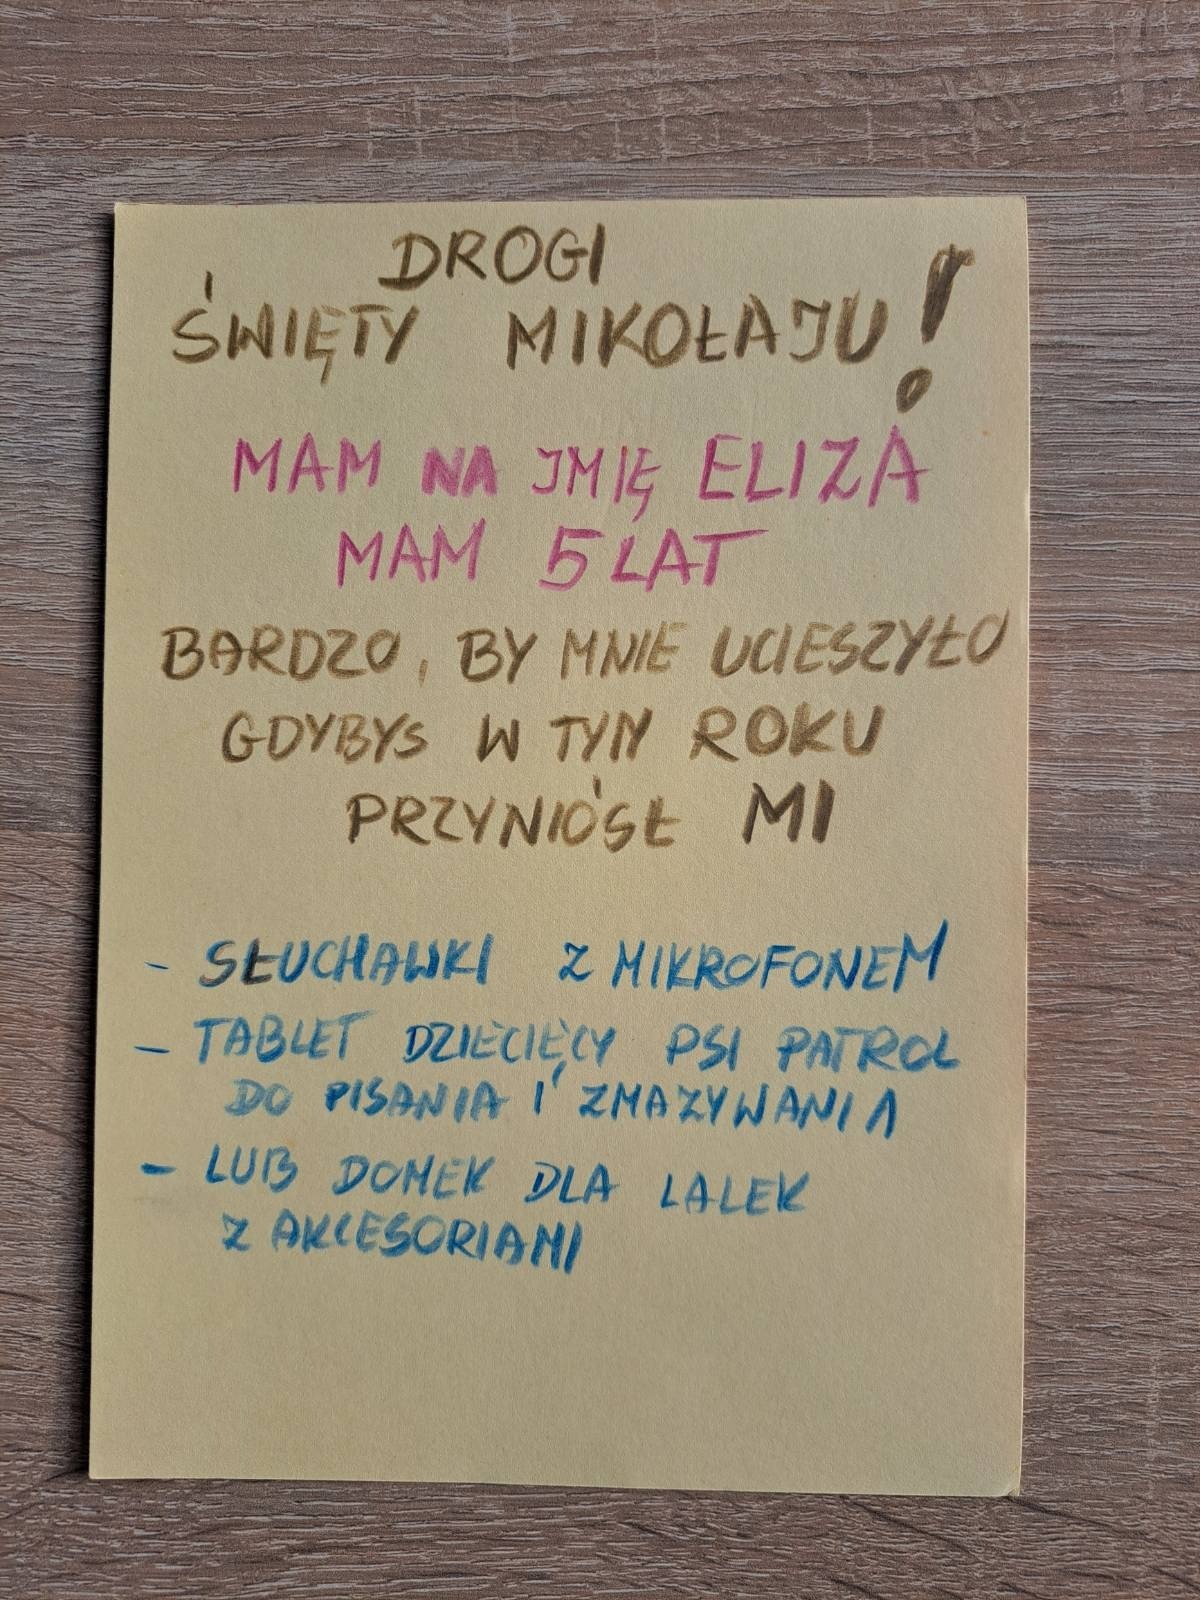 DROGI
ŚWIĘTY MIKOŁAJU!
MAM NA IMIĘ ELIZA
MAM 5 LAT
BARDZO, BY MNIE UCIESZYŁO
GDYBYS W TYM ROKU
PRZYNIÓSŁ MI
- SŁUCHAWKI Z MIKROFONEM
- TABLET DZIECIĘCY PSI PATROL
DO PISANIA I ZMAZYWANIA
- LUB DOMEK DLA LALEK
Z AKCESORIAMI